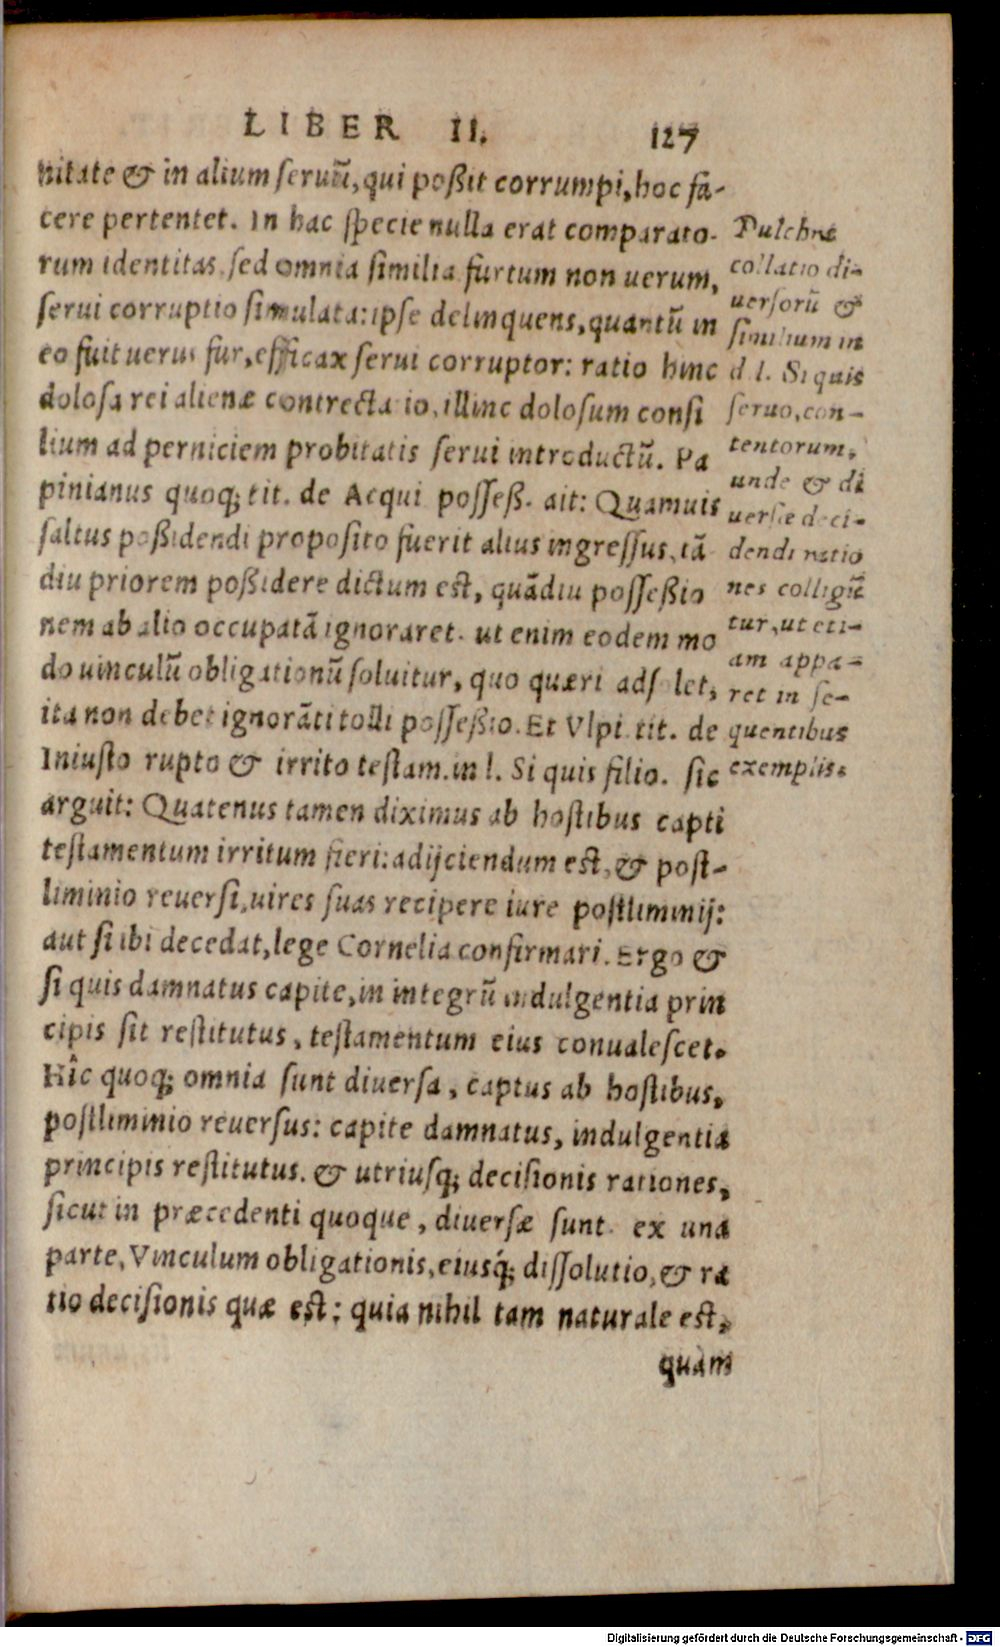 LIBER II. 127
nitate & in alium seruũ, qui poßit corrumpi, hoc fa-
cere pertentet. In hac specie nulla erat comparato-
rum identitas, sed omnia similia furtum non uerum,
serui corruptio simulata: ipse delinquens, quantũ in
eo fuit uerus fur, efficax serui corruptor: ratio hinc
dolosa rei alienæ contrectatio, illinc dolosum consi
lium ad perniciem probitatis serui introductũ. Pa
pinianus quoq; tit. de Acqui posseß. ait: Quamuis
saltus poßidendi proposito fuerit alius ingressus, tã
diu priorem poßidere dictum est, quãdiu posseßio
nem ab alio occupatã ignoraret. ut enim eodem mo
do uinculũ obligationũ soluitur, quo quæri adsolet,
ita non debet ignorãti tolli posseßio. Et Vlpi. tit. de
Iniusto rupto & irrito testam. in l. Si quis filio. sic
arguit: Quatenus tamen diximus ab hostibus capti
testamentum irritum fieri: adijciendum est, & post-
liminio reuersi, uires suas recipere iure postliminij:
aut si ibi decedat, lege Cornelia confirmari. Ergo &
si quis damnatus capite, in integrũ indulgentia prin
cipis sit restitutus, testamentum eius conualescet.
Hîc quoq; omnia sunt diuersa, captus ab hostibus,
postliminio reuersus: capite damnatus, indulgentia
principis restitutus. & utriusq; decisionis rationes,
sicut in præcedenti quoque, diuersæ sunt. ex una
parte, Vinculum obligationis, eiusq́; dissolutio, & ra
tio decisionis quæ est: quia nihil tam naturale est,
quàm
Pulchre
collatio di-
uersorũ &
similium in
d. l. Si quis
seruo, con-
tentorum,
unde & di
uersæ deci-
dendi ratio
nes colligũ
tur, ut eti-
am appa-
ret in se-
quentibus
exemplis.
Digitalisierung gefördert durch die Deutsche Forschungsgemeinschaft - DFG